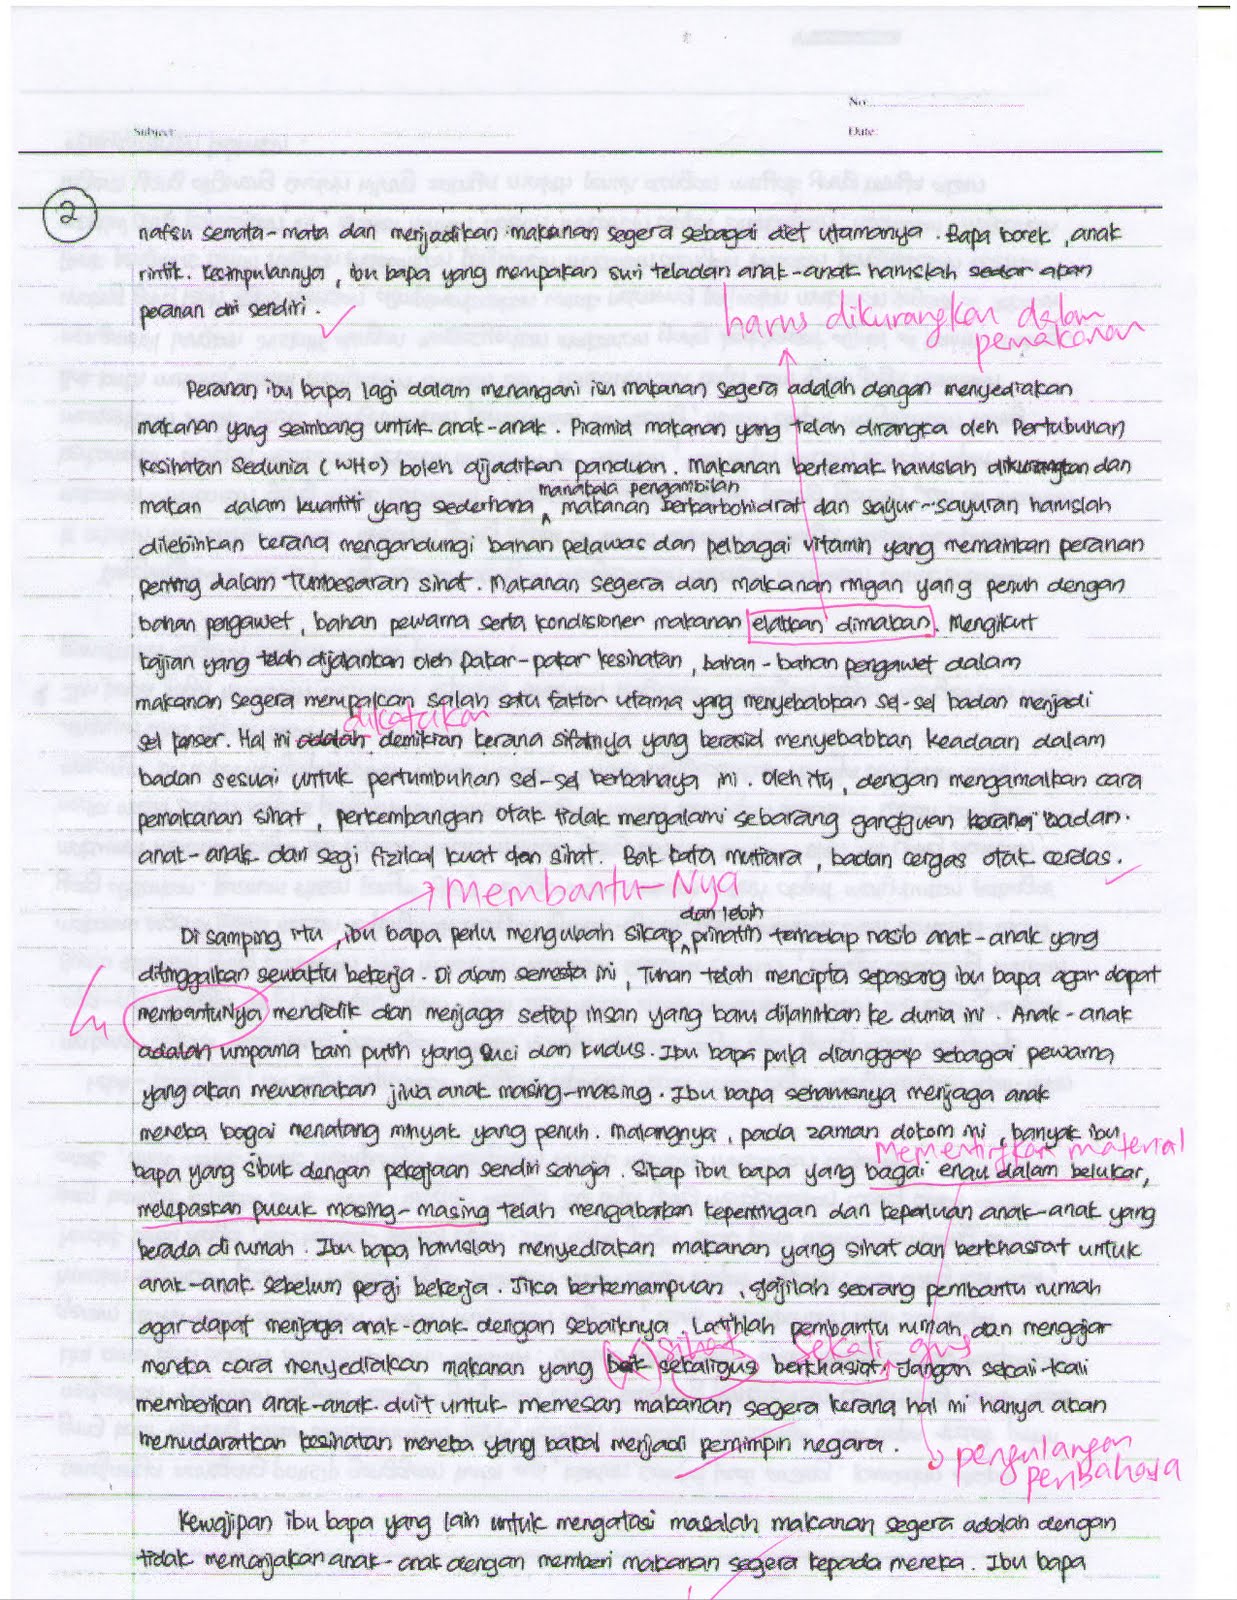 No:
Subject:
Date:
2
nafsu semata-mata dan menjadikan makanan segera sebagai diet utamanya. Bapa borek, anak
rintik. Kesimpulannya, ibu bapa yang merupakan suri teladan anak-anak haruslah sedar akan
peranan diri sendiri.
harus dikurangkan dalam
pemakanan
Peranan ibu bapa lagi dalam menangani isu makanan segera adalah dengan menyediakan
makanan yang seimbang untuk anak-anak. Piramid makanan yang telah dirangka oleh Pertubuhan
Kesihatan Sedunia (WHO) boleh dijadikan panduan. Makanan berlemak haruslah dikurangkan dan
manakala pengambilan
makan dalam kuantiti yang sederhana makanan berkarbohidrat dan sayur-sayuran haruslah
dilebihkan kerana mengandungi bahan pelawas dan pelbagai vitamin yang memainkan peranan
penting dalam tumbesaran sihat. Makanan segera dan makanan ringan yang penuh dengan
bahan pengawet, bahan pewarna serta kondisioner makanan elakkan dimakan. Mengikut
kajian yang telah dijalankan oleh pakar-pakar kesihatan, bahan-bahan pengawet dalam
makanan segera merupakan salah satu faktor utama yang menyebabkan sel-sel badan menjadi
dikatakan
sel kanser. Hal ini adalah demikian kerana sifatnya yang berasid menyebabkan keadaan dalam
badan sesuai untuk pertumbuhan sel-sel berbahaya ini. Oleh itu, dengan mengamalkan cara
pemakanan sihat, perkembangan otak tidak mengalami sebarang gangguan kerana badan.
anak-anak dari segi fizikal kuat dan sihat. Bak kata mutiara, badan cergas otak cerdas.
membantu-Nya
dan lebih
Di samping itu, ibu bapa perlu mengubah sikap prihatin terhadap nasib anak-anak yang
ditinggalkan sewaktu bekerja. Di alam semesta ini, Tuhan telah mencipta sepasang ibu bapa agar dapat
membantuNya mendidik dan menjaga setiap insan yang baru dilahirkan ke dunia ini. Anak-anak
adalah umpama kain putih yang suci dan kudus. Ibu bapa pula dianggap sebagai pewarna
yang akan mewarnakan jiwa anak masing-masing. Ibu bapa seharusnya menjaga anak
mereka bagai menatang minyak yang penuh. Malangnya, pada zaman dotcom ini, banyak ibu
mementingkan material
bapa yang sibuk dengan pekerjaan sendiri sahaja. Sikap ibu bapa yang bagai enau dalam belukar,
melepaskan pucuk masing-masing telah mengabaikan kepentingan dan keperluan anak-anak yang
berada di rumah. Ibu bapa haruslah menyediakan makanan yang sihat dan berkhasiat untuk
anak-anak sebelum pergi bekerja. Jika berkemampuan, gajilah seorang pembantu rumah
agar dapat menjaga anak-anak dengan sebaiknya. Latihlah pembantu rumah dan mengajar
sihat sekali gus
mereka cara menyediakan makanan yang baik sekaligus berkhasiat. Jangan sekali-kali
memberikan anak-anak duit untuk memesan makanan segera kerana hal ini hanya akan
memudaratkan kesihatan mereka yang bakal menjadi pemimpin negara.
pengulangan
peribahasa
Kewajipan ibu bapa yang lain untuk mengatasi masalah makanan segera adalah dengan
tidak memanjakan anak-anak dengan memberi makanan segera kepada mereka. Ibu bapa